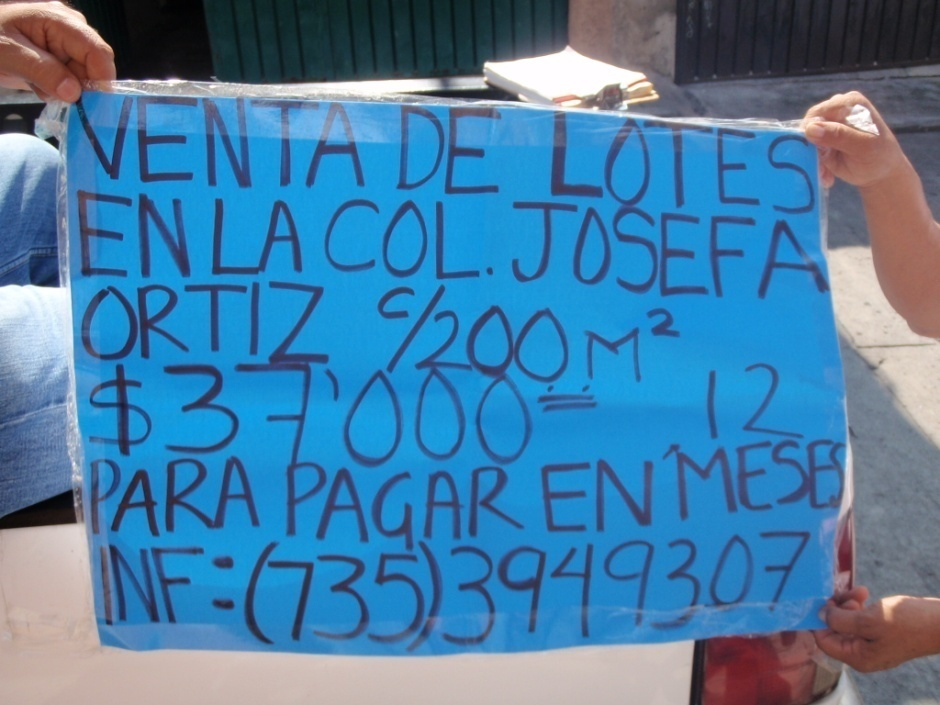 VENTA DE LOTES
EN LA COL. JOSEFA
ORTIZ c/200 M²
$37'000 12
PARA PAGAR EN MESES
INF:(735)3949307